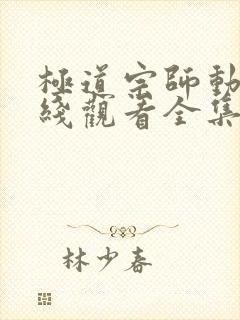 極道宗師動
綫觀看全集
林少春